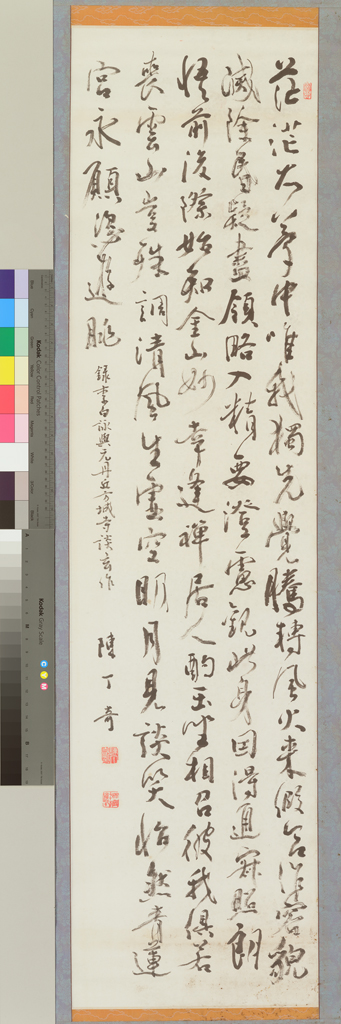 茫茫大夢中唯我獨先覺騰轉風火來假合作容貌
滅除昏疑盡領略入精要澄慮觀此身因得通寂照朗
悟前後際始知金仙妙幸逢禪居人酌玉坐相召彼我俱若
喪雲山豈殊調清風生虛空明月見談笑怡然青蓮
宮永願恣遊眺
錄李白詠與元丹丘方城寺談玄作
陳丁奇
Kodak Color Control Patches
Kodak Gray Scale
C Y M